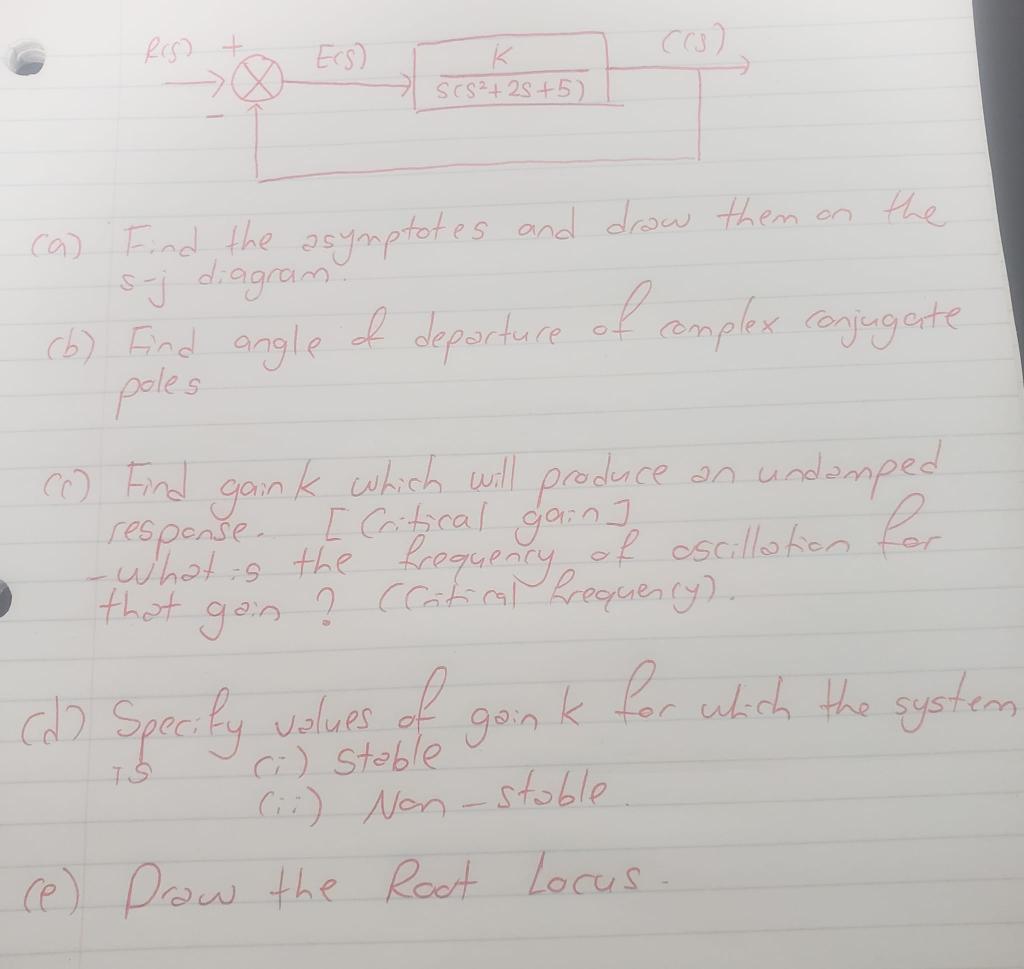 R(s) + E(s) K C(s)
S(S²+2S+5)
-
(a) Find the asymptotes and draw them on the
s-j diagram.
(b) Find angle of departure of complex conjugate
poles
(c) Find gain k which will produce an undamped
response. [Critical gain]
- What is the frequency of oscillation for
that gain? (Critical frequency).
(d) Specify values of gain k for which the system
is (i) Stable
(ii) Non-stable.
(e) Draw the Root Locus.